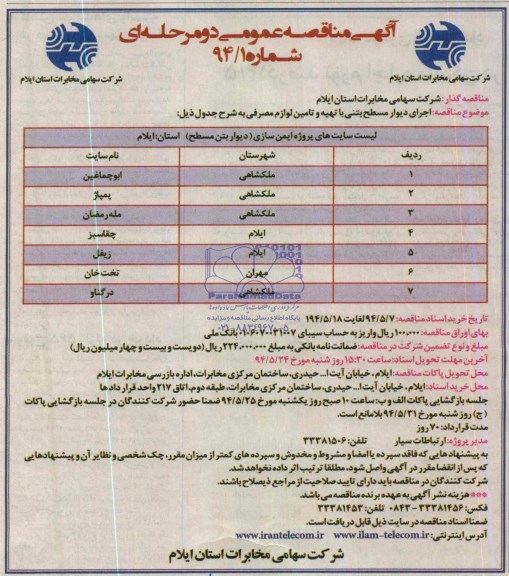 آگهی مناقصه عمومی دو مرحله ای
شماره ۹۴/۱
شرکت سهامی مخابرات استان ایلام
شرکت سهامی مخابرات استان ایلام
مناقصه گذار: شرکت سهامی مخابرات استان ایلام
موضوع مناقصه: اجرای دیوار مسطح بتنی با تهیه و تامین لوازم مصرفی به شرح جدول ذیل:
لیست سایت های پروژه ایمن سازی (دیوار بتن مسطح) استان: ایلام
ردیف شهرستان نام سایت
۱ ملکشاهی ابوچماغین
۲ ملکشاهی پمپاژ
۳ ملکشاهی مله رمضان
۴ ایلام چقاسبز
۵ ایلام زیفل
۶ مهران تخت خان
۷ ملکشاهی درگناو
تاریخ خرید اسناد مناقصه: ۹۴/۵/۷ لغایت ۹۴/۵/۱۸
بهای اوراق مناقصه: ۱۰۰,۰۰۰ ریال واریز به حساب سیبای بانک ملی
مبلغ و نوع تضمین شرکت در مناقصه: ضمانت نامه بانکی به مبلغ ۲۲۴,۰۰۰,۰۰۰ ریال (دویست و بیست و چهار میلیون ریال)
آخرین مهلت تحویل اسناد: ساعت ۱۵:۳۰ روز شنبه مورخ ۹۴/۵/۲۴
محل تحویل پاکات مناقصه: ایلام، خیابان آیت ا... حیدری، ساختمان مرکزی مخابرات، اداره بازرسی مخابرات ایلام
محل خرید اسناد: ایلام، خیابان آیت ا... حیدری، ساختمان مرکزی مخابرات، طبقه دوم، اتاق ۲۱۷ واحد قراردادها
جلسه بازگشایی پاکات الف و ب: ساعت ۱۰ صبح روز یکشنبه مورخ ۹۴/۵/۲۵ ضمنا حضور شرکت کنندگان در جلسه بازگشایی پاکات
(ج) روز شنبه مورخ ۹۴/۵/۳۱ بلامانع است.
مدت قرارداد: ۷۰ روز
مدیر پروژه: ارتباطات سیار تلفن: ۳۳۳۸۱۵۰۶
به پیشنهادهایی که فاقد سپرده یا امضا و مشروط و مخدوش و سپرده های کمتر از میزان مقرر، چک شخصی و نظایر آن و پیشنهادهایی
که پس از انقضا مقرر در آگهی واصل شود، مطلقا ترتیب اثر داده نخواهد شد.
شرکت کنندگان در مناقصه باید دارای تایید صلاحیت از مراجع ذیصلاح باشند.
***هزینه نشر آگهی به عهده برنده مناقصه می باشد.
فکس: ۳۳۳۸۱۴۵۶ - ۰۸۴۳ تلفن: ۳۳۳۸۱۴۵۳
ضمنا اسناد مناقصه در سایت ذیل قابل دریافت است.
آدرس اینترنتی: www.irantelecom.ir www.ilam-telecom.ir
شرکت سهامی مخابرات استان ایلام
ParsNamadData
پایگاه اطلاع رسانی مناقصه و مزایده
۰۲۱-۸۸۳۴۹۶۷۰-۵